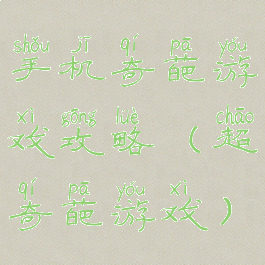 shǒu jī qí pā yóu
手机奇葩游
xì gōng lüè chāo
戏攻略（超
qí pā yóu xì
奇葩游戏）